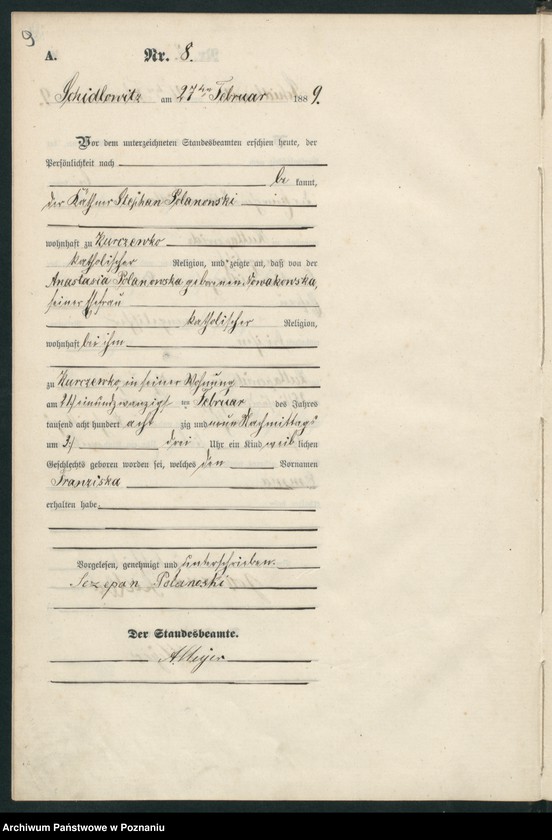 9
A. Nr. 8.
Schidlowitz am 27ten Februar 1889.
Vor dem unterzeichneten Standesbeamten erschien heute, der
Persönlichkeit nach
be kannt,
der Käthner Stephan Polanowski
wohnhaft zu Kurczewko
katholischer Religion, und zeigte an, daß von der
Anastasia Polanowska geborenen Nowakowska,
seiner Ehefrau
katholischer Religion,
wohnhaft bei ihm
zu Kurczewko in seiner Wohnung
am ten Februar des Jahres
tausend acht hundert acht zig und neun Nachmittags
um 3 drei Uhr ein Kind weib lichen
Geschlechts geboren worden sei, welches den Vornamen
Franziska
erhalten habe.
Vorgelesen, genehmigt und unterschrieben.
Sczepan Polanoski
Der Standesbeamte.
Archiwum Państwowe w Poznaniu